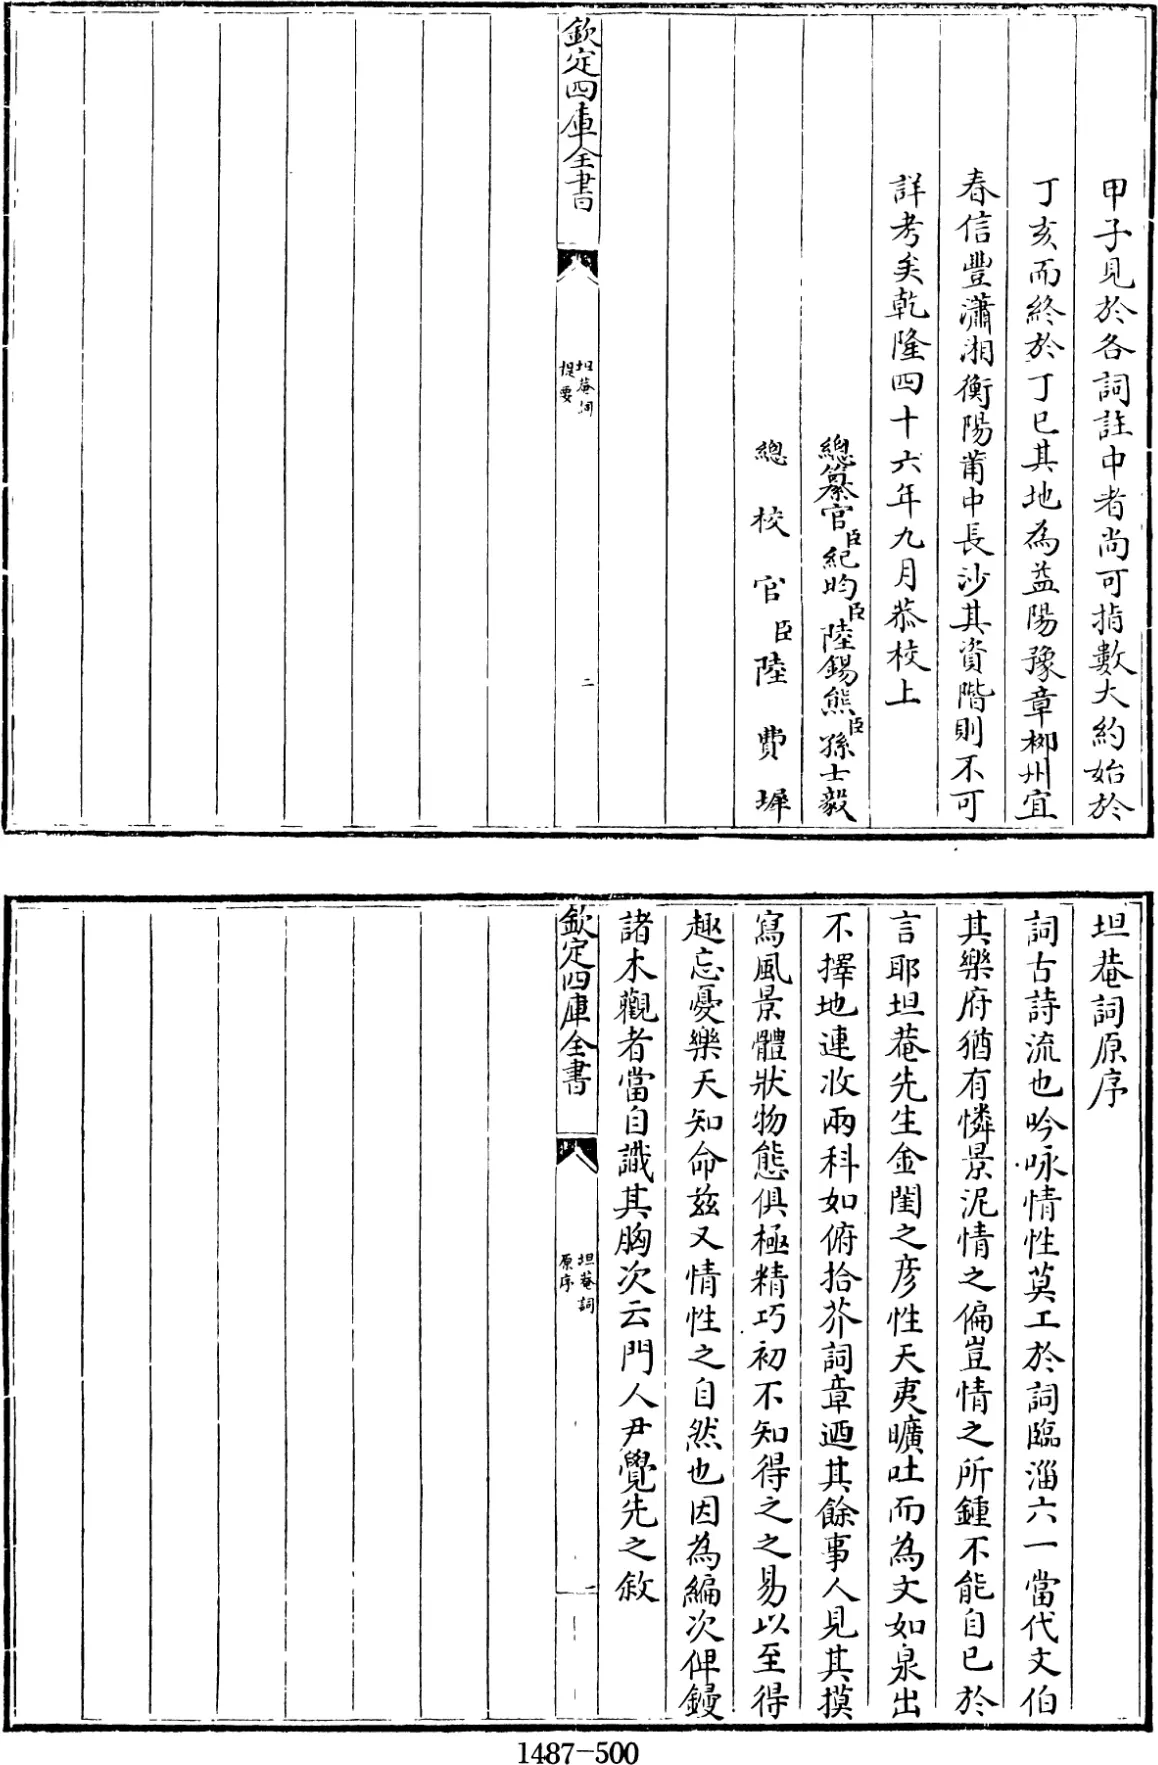 甲子見於各詞註中者尚可指數大約始於
丁亥而終於丁巳其地為益陽豫章柳州宜
春信豐瀟湘衡陽莆中長沙其資階則不可
詳考矣乾隆四十六年九月恭校上
總纂官臣紀昀臣陸錫熊臣孫士毅
總校官臣陸費墀
欽定四庫全書
坦菴詞
提要
二
坦菴詞原序
詞古詩流也吟咏情性莫工於詞臨淄六一當代文伯
其樂府猶有憐景泥情之偏豈情之所鍾不能自已於
言耶坦菴先生金閨之彦性天夷曠吐而為文如泉出
不擇地連收兩科如俯拾芥詞章迺其餘事人見其摸
寫風景體狀物態俱極精巧初不知得之之易以至得
趣忘憂樂天知命兹又情性之自然也因為編次俾鋟
諸木觀者當自識其胸次云門人尹覺先之敘
欽定四庫全書
坦菴詞
原序
一
1487-500